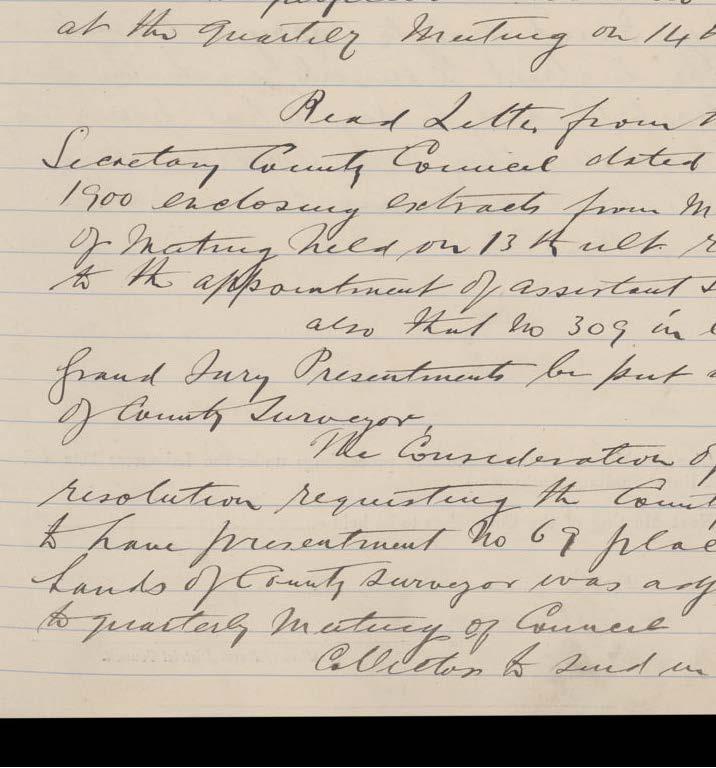 at the quarterly Meeting on 14
Read Letter from
Secretary County Council dated
1900 enclosing extracts from M
of Meeting held on 13th ult. r
to the appointment of assistant s
also that No 309 in
Grand Jury Presentments be put
of County Surveyor,
The Consideration of
resolution requesting the Count
to have presentment No 69 plac
hands of County Surveyor was adj
to quarterly Meeting of Council
Collectors to send in